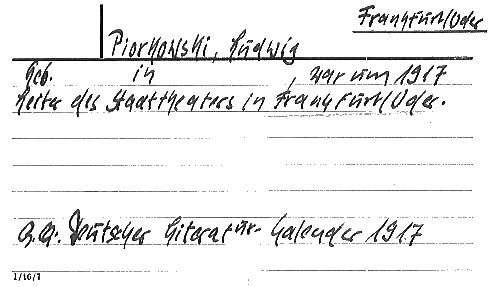 Frankfurt/Oder
Piorkowski, Ludwig
Geb. in , war um 1917
Leiter des Stadttheaters in Frankfurt/Oder.
Deutscher Literatur-Kalender 1917
1/16/7